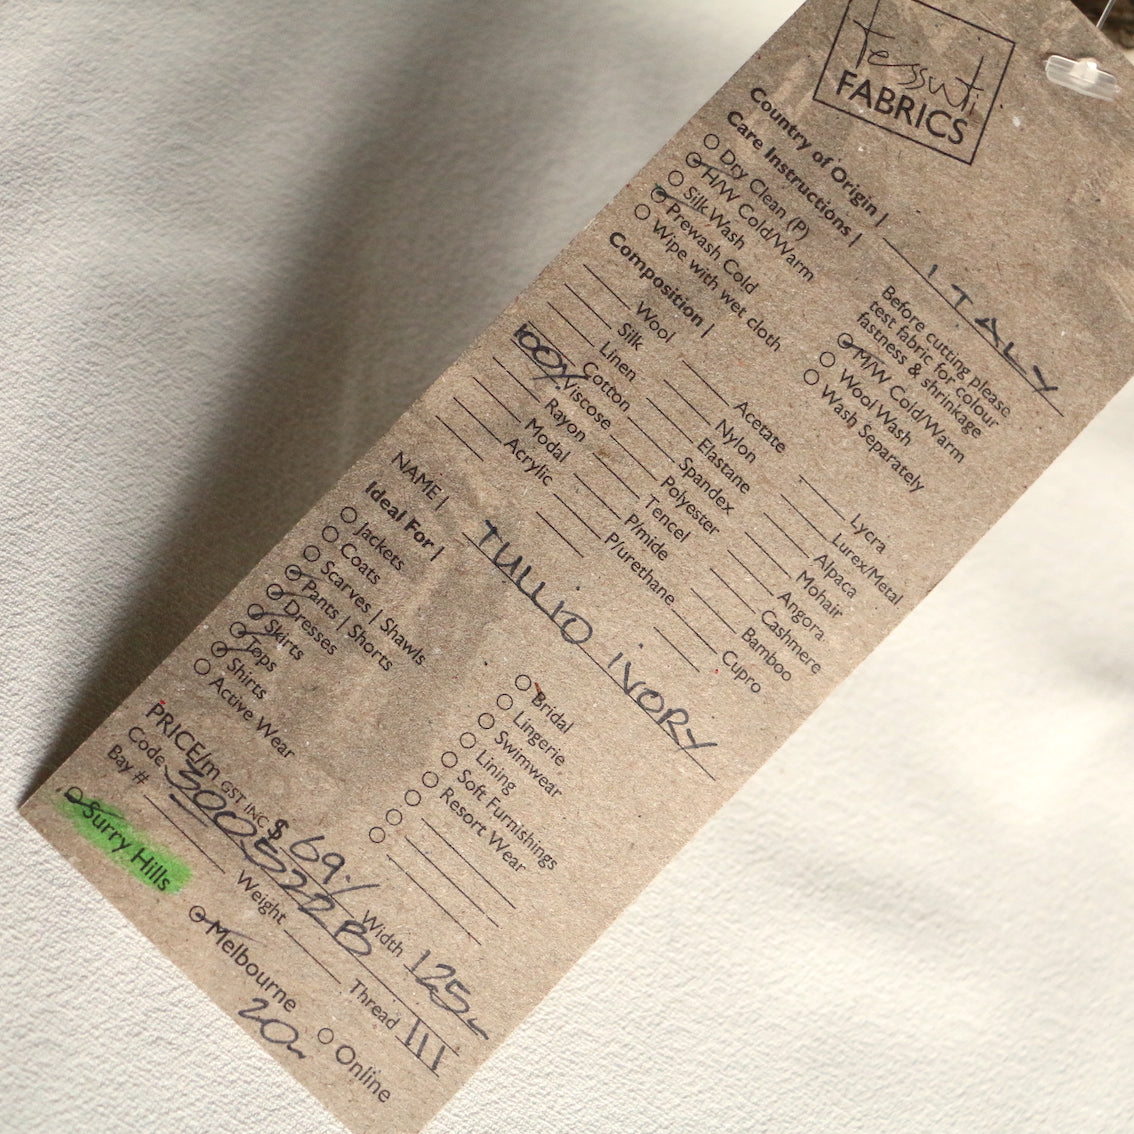 tessuti
FABRICS
Country of Origin | ITALY
Care Instructions |
Dry Clean (P)
H/W Cold/Warm
Silk Wash
Prewash Cold
Wipe with wet cloth
Before cutting please
test fabric for colour
fastness & shrinkage
M/W Cold/Warm
Wool Wash
Wash Separately
Composition |
Wool
Silk
Linen
Cotton
100% Viscose
Rayon
Modal
Acrylic
Acetate
Nylon
Elastane
Spandex
Polyester
Tencel
P/mide
P/urethane
Lycra
Lurex/Metal
Alpaca
Mohair
Angora
Cashmere
Bamboo
Cupro
NAME | TULLIO IVORY
Ideal For |
Jackets
Coats
Scarves | Shawls
Pants | Shorts
Dresses
Skirts
Tops
Shirts
Active Wear
Bridal
Lingerie
Swimwear
Lining
Soft Furnishings
Resort Wear
PRICE/m GST INC $ 69./ Width 125
Code 300522B
Bay # Weight Thread III
Surry Hills Melbourne Online
20